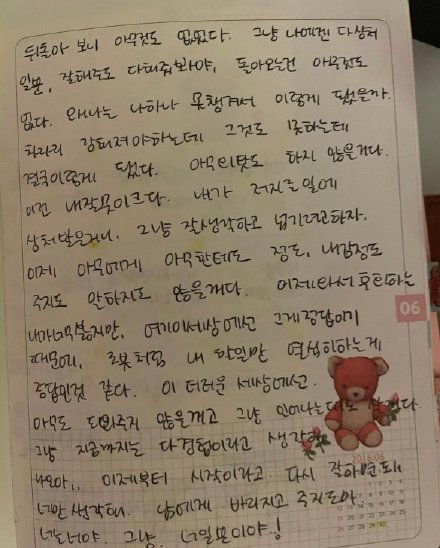 뒤돌아 보니 아무것도 없었다. 그냥 나에겐 다 상처
일뿐, 잘해주도 다해줘봐야, 돌아오는건 아무것도
없다. 왜나는 나하나 못챙겨서 이렇게 됐을까.
차라리 강해져야하는데 그것도 못하는데
결국이렇게 됐다. 아무리탓도 하지 않을거다.
이건 내잘못이크다. 내가 저지른일에
상처받은거니. 그냥 잘생각하고 넘기려고하자.
이제 아무에게 아무한테도 정도, 내감정도
주지도 말하지도 않을거다. 이제와서 후회하는
내가너무싫지만, 여기이세상에선 그게정답이기
때문에, 로봇처럼 내 할일만 열심히하는게
정답인것 같다. 이 더러운 세상에선.
아무도 도와주지 않을꺼고 그냥 있어나는대로
그냥 지금까지는 다경험이라고 생각
나오아,, 이제부터 시작이라고 다시 각하면돼
너만생각해. 남에게 바라지고 주지도마.
너는너야. 그냥 너일뿐이야!
06
2016.06